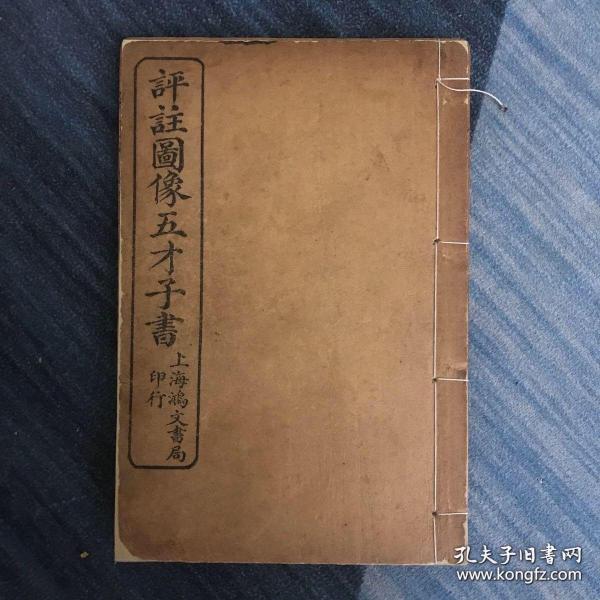 評註圖像五才子書
上海鴻文書局
印行
孔夫子旧书网
www.kongfz.com